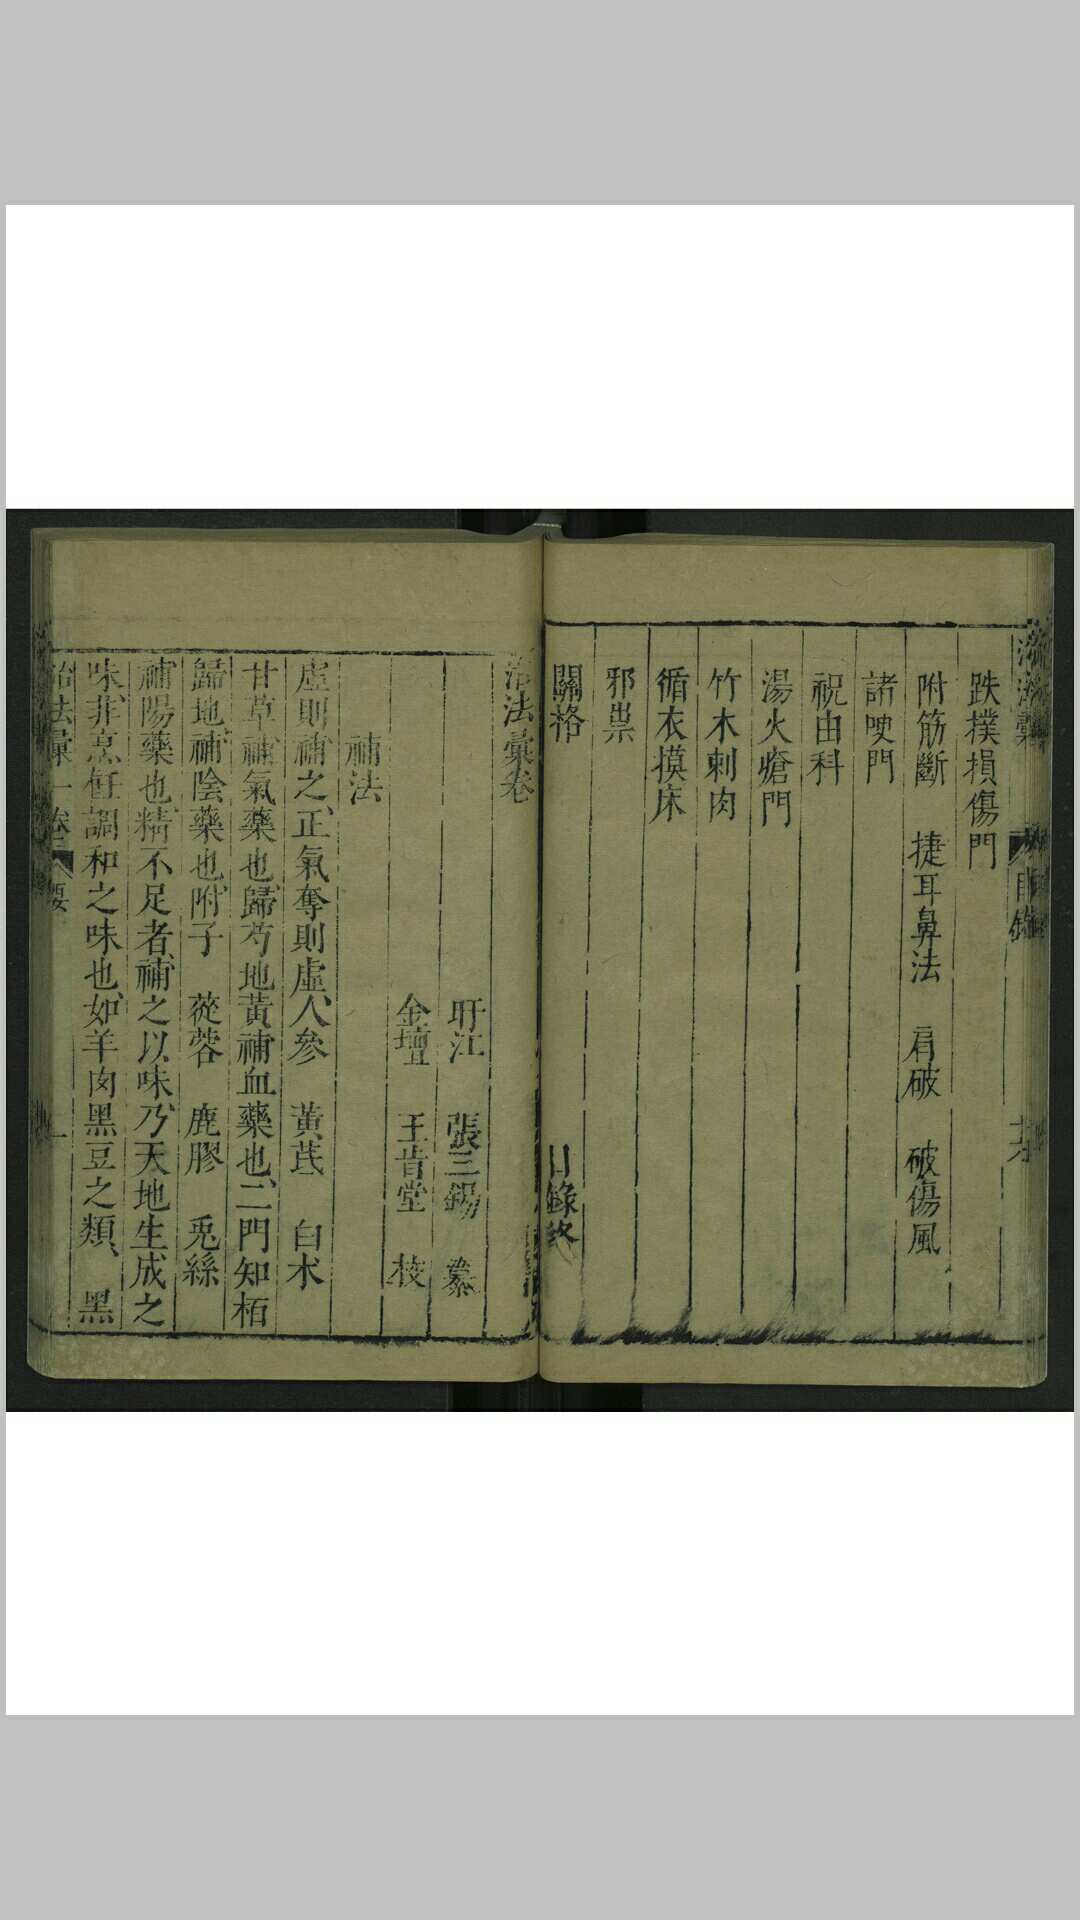 跌撲損傷門
附筋斷　捷耳鼻法　肩破　破傷風
諸哽門
祝由科
湯火瘡門
竹木刺肉
循衣摸床
邪祟
關格　目錄終
治法彙卷
盱江　張三錫　纂
金壇　王肯堂　校
補法
虛則補之、正氣奪則虛、人參　黃芪　白朮
甘草、補氣藥也、歸芍地黃補血藥也、二門知栢
歸地、補陰藥也、附子　蓯蓉　鹿膠　兎絲
補陽藥也、精不足者、補之以味、乃天地生成之
味、非烹飪調和之味也、如羊肉黑豆之類、黑
治法彙　一卷　要　一